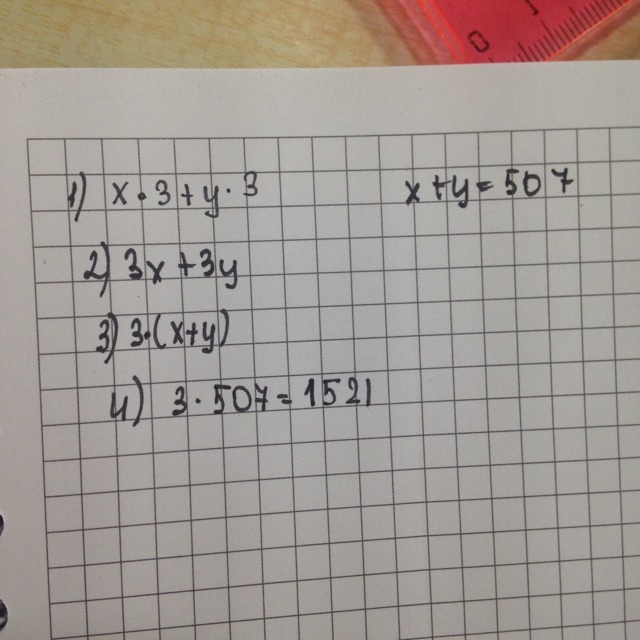 1) x · 3 + y · 3
x + y = 507
2) 3x + 3y
3) 3·(x+y)
4) 3 · 507 = 1521
0 1